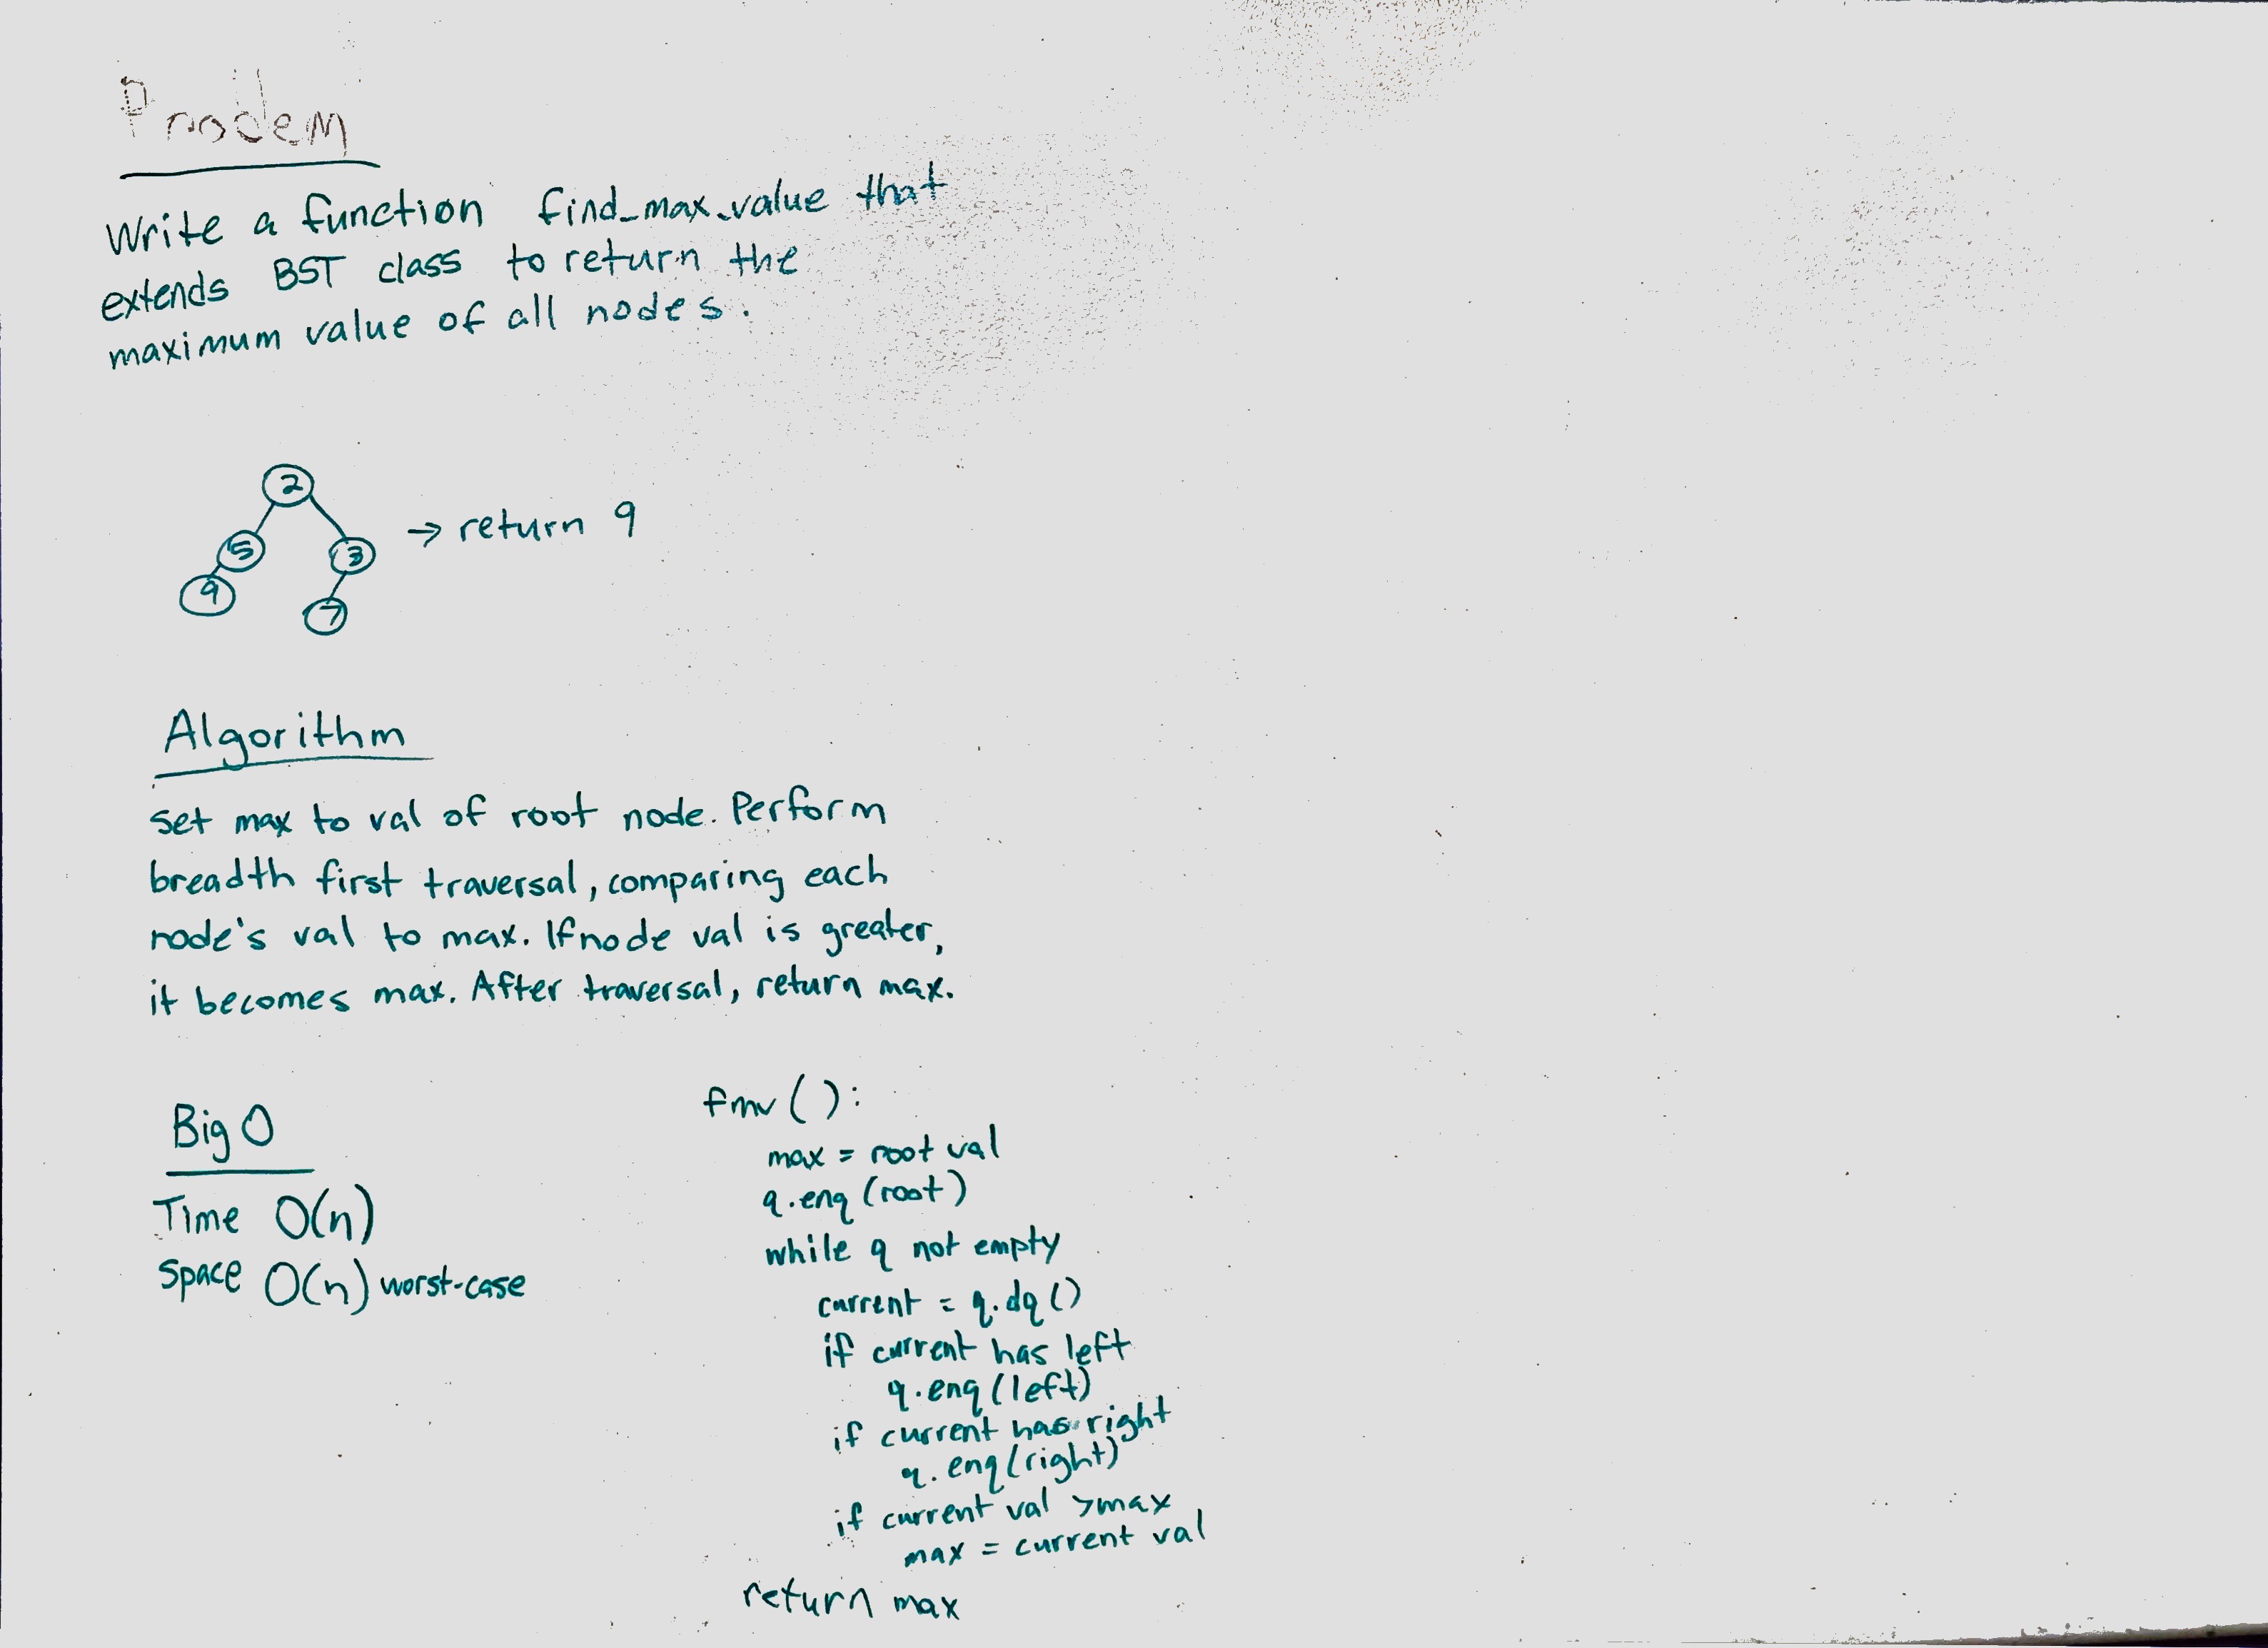 Problem
Write a function find_max_value that
extends BST class to return the
maximum value of all nodes.
2
5
3
→ return 9
9
7
Algorithm
set max to val of root node. Perform
breadth first traversal, comparing each
node's val to max. If node val is greater,
it becomes max. After traversal, return max.
Big O
Time O(n)
Space O(n) worst-case
fmv():
max = root val
q.enq(root)
while q not empty
current = q.dq()
if current has left
q.enq(left)
if current has right
q.enq(right)
if current val >max
max = current val
return max